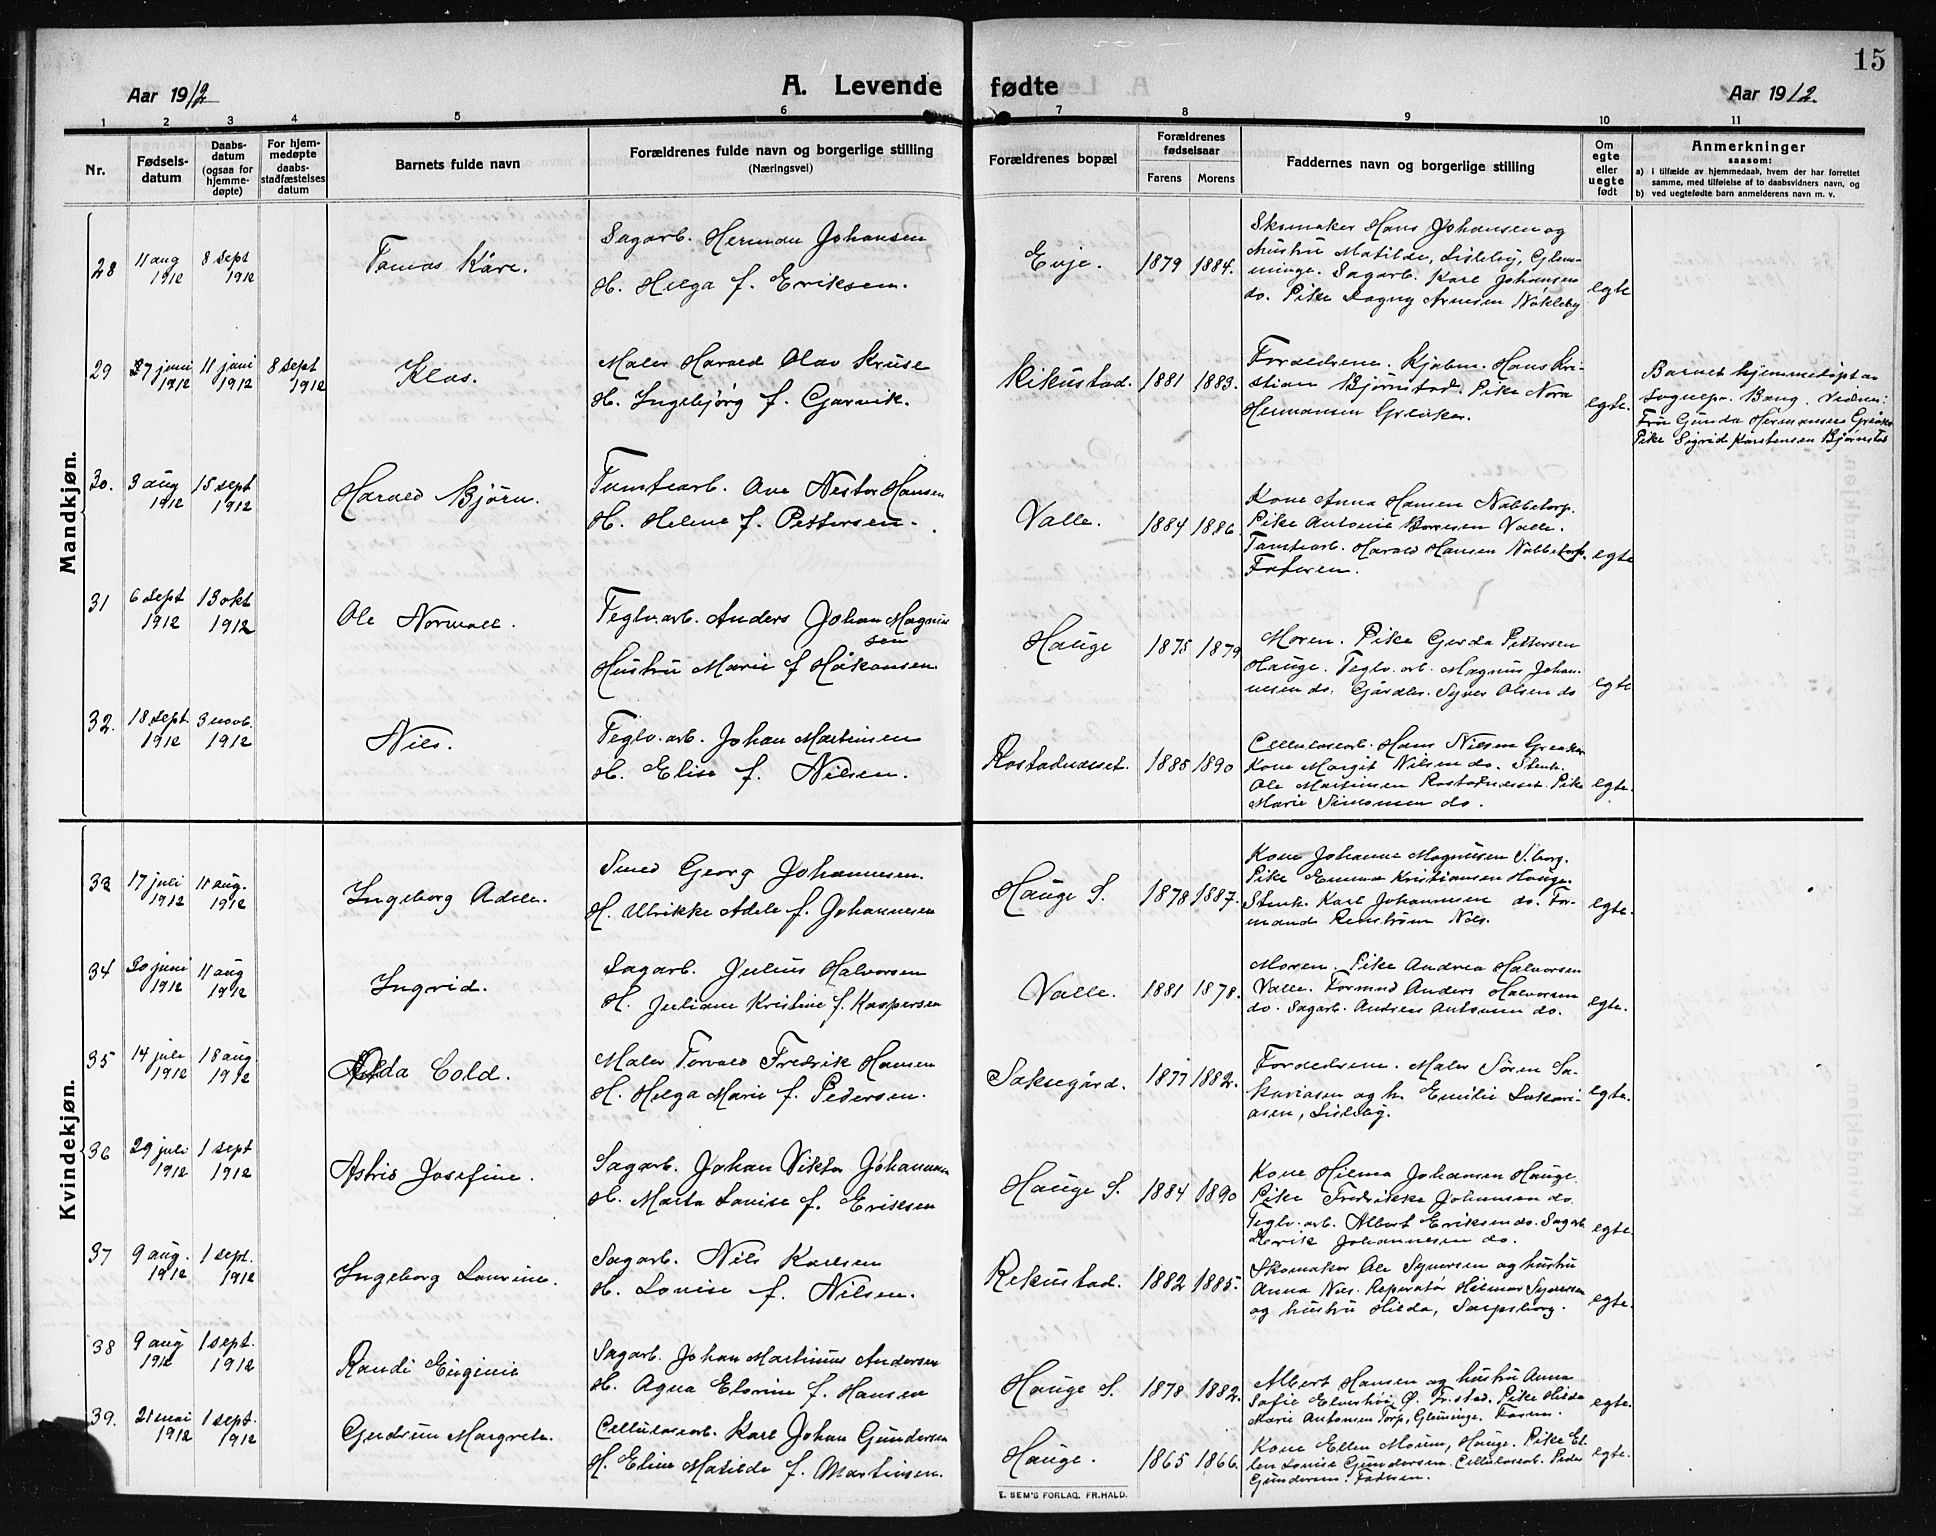 15
Aar 1912
A. Levende fødte
Aar 1912.
1 2 3 4 5 6 7 8 9 10 11
Nr.
Fødsels-
datum
Daabs-
datum
(ogsaa for
hjemme-
døpte)
For hjem-
medøpte
daabs-
stadfæstelses
datum
Barnets fulde navn
Forældrenes fulde navn og borgerlige stilling
(Næringsvei)
Forældrenes bopæl
Forældrenes
fødselsaar
Farens Morens
Faddernes navn og borgerlige stilling
Om
egte
eller
uegte
født
Anmerkninger
saasom:
a) I tilfælde av hjemmedaab, hvem der har forrettet
samme, med tilføielse af to daabsvidners navn, og
b) ved uegtefødte barn anmelderens navn m. v.
Mandkjøn.
28
11 aug
1912
8 sept
1912
Tomas Kåre.
Sagarb. Herman Johansen
H. Helga f. Eriksen.
Evje.
1879 1884.
Skomaker Hans Johansen og
hustru Matilde, Lisleby, Glem-
minge. Sagarb. Karl Johansen
do. Pike Dagny Arnesen Nokleby
egte
29
27 juni
1912
11 juni
1912
8 sept
1912
Klas.
Maler Harald Olav Kruse
H. Ingebjørg f. Gjervik.
Rikustad.
1881 1883.
Forældrene. Kjøbm. Hans Kri-
stian Bjørnstad. Pike Nora
Hermansen Greaker.
egte.
Barnet hjemmedøpt av
sognepr. Bang. Vidner:
Fru Gunda Hermansen Greaker
Pike Sigrid Karstensen Bjørnstad
30.
3 aug
1912
15 sept
1912
Harald Bjørn.
Tomtearb. Ove Nestor Hansen
H. Helene f. Pettersen.
Valle.
1884 1886.
Kone Anna Hansen Nabbetorp.
Pike Antonie Borresen Valle.
Tomtearb. Harald Hansen Nabbetorp.
Faderen.
egte
31
6 sept
1912
13 okt
1912
Ole Normall.
Teglv.arb. Anders Johan Magnus
sen
Hustru Marie f Håkansen.
Hauge
1875 1879
Moren. Pike Gerda Pettersen
Hauge. Teglv. arb. Magnus Johan-
nesen do. Gårdbr. Syver Olsen do
egte
32.
18 sept.
1912
3 novb.
1912
Nils.
Teglv. arb. Johan Martinsen
H. Elise f. Nilsen.
Rostadneset.
1885 1890
Cellulosearb. Hans Nilsen Greaker
Kone Margit Nilsen do. Stenh.
Ole Martinsen Rostadneset. Pike
Marie Simonsen do.
egte.
Kvindekjøn.
33
17 juli
1912
11 aug.
1912
Ingeborg Adele.
Smed Georg Johannesen.
H. Ulrikke Adele f. Johannesen
Hauge S.
1878 1887.
Kone Johanne Magnusen S.borg.
Pike Emma Kristiansen Hauge.
Stenh. Karl Johannesen do. For-
mand Renstrøm Nes.
egte.
34
30 juni
1912
11 aug
1912
Ingrid.
Sagarb. Julius Halvorsen
H. Juliane Kristine f. Kaspersen
Valle.
1881 1878.
Moren. Pike Andrea Halvorsen
Valle. Formnd Anders Halvorsen
do. Sagarb. Andreas Antonsen do.
egte.
35
14 juli
1912
18 aug.
1912
Alda Cold.
Maler Torvald Fredrik Hansen
H. Helga Marie f. Pedersen.
Saksegård.
1877 1882.
Forældrene. Maler Sören Sa-
kariasen og h. Emilie Sakari-
asen, Lisleby.
egte.
36
29 juli
1912
1 sept
1912
Astrid Josefine.
Sagarb. Johan Viktor Johannesen
H. Marta Lovise f. Eriksen
Hauge S.
1884 1890
Kone Hilma Johansen Hauge.
Pike Fredrikke Johansen do.
Teglv. arb. Albert Eriksen do. Sagarb.
Henrik Johannesen do.
egte.
37
9 aug.
1912
1 sept.
1912
Ingeborg Lovrine.
Sagarb. Nils Karlsen
H. Lovise f. Nilsen.
Rekustad.
1882 1885.
Skomaker Ole Syversen og hustru
Anna Nes. Reperatør Hilmar Syversen
og hustru Hilda, Sarpsborg.
egte.
38
9 aug
1912
1 sept.
1912
Randi Eugenie
Sagarb. Johan Martinus Andersen
H. Agna Elovine f. Hansen
Hauge S.
1878 1882.
Albert Hansen og hustru Anna
Sofie Elvesthøi Ø. Fr.stad. Pike Hilda
Marie Antonsen Torp, Gleminge. Faren.
egte.
39.
21 mai
1912
1 sept.
1912
Gudrun Margrete.
Cellulosearb. Karl Johan Gundersen
H. Eline Matilde f. Martinsen.
Hauge.
1865 1866.
Kone Ellen Moum, Hauge. Pike El-
len Lovise Gundersen. Cellulosearb. Peder
Gundersen. Faderen.
egte.
E. SEM'S FORLAG, FR.HALD.